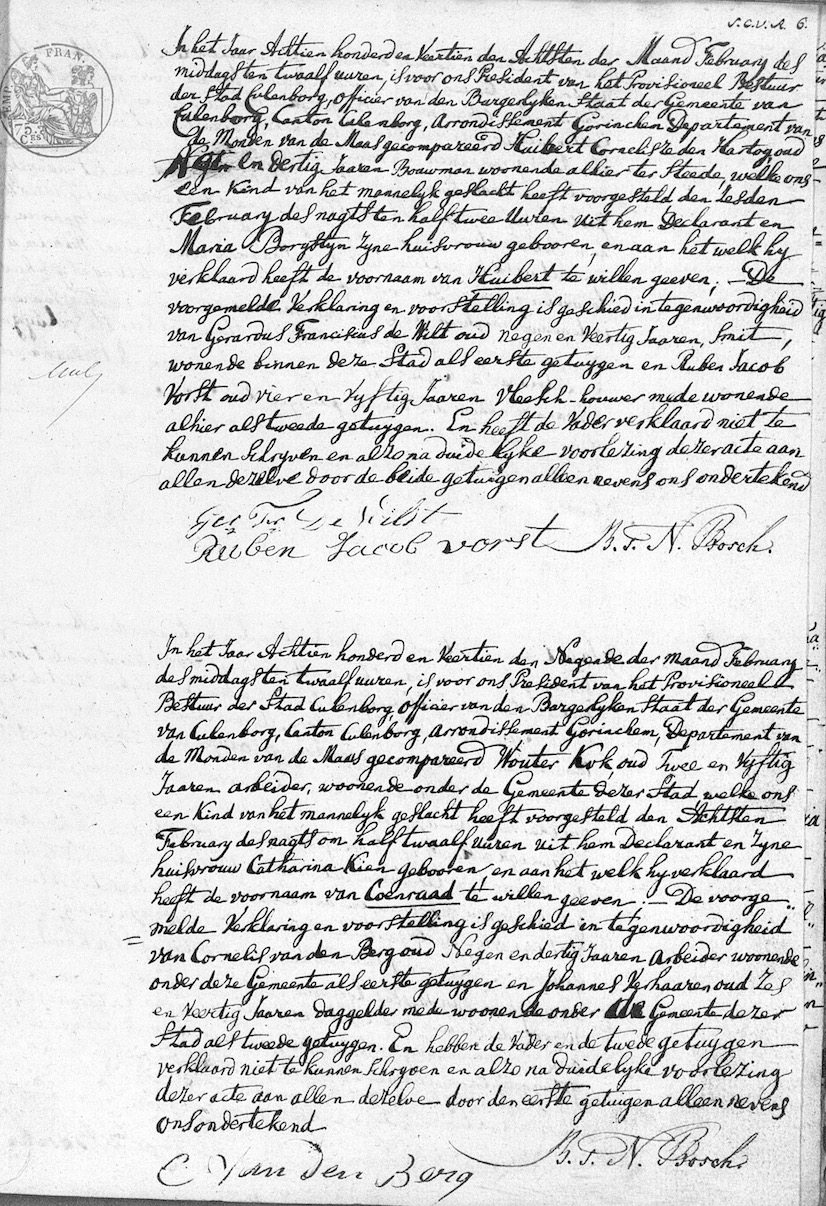 S.C.V.A. 6.
FRAN.
In het Jaar Achtien honderd en Veertien den Achtsten der Maand February des
middags ten twaalf uuren, is voor ons President van het Provisioneel Bestuur
der Stad Culenborg, Officier van den Burgerlyken Staat der Gemeente van
Culenborg, Canton Culenborg, Arrondissement Gorinchem Departement van
de Monden van de Maas gecompareerd Huibert Cornelisze den Hartog oud
Negen en dertig Jaaren Bouwman woonende alhier ter Steede, welke ons
een Kind van het mannelyk geslacht heeft voorgesteld den Zesden
February des nagts ten half twee Uuren uit hem Declarant en
Maria Borgstyn Zyne huisvrouw gebooren, en aan het welk hy
verklaard heeft de voornaam van Huibert te willen geeven; — De
voorgemelde Verklaring en voorstelling is geschied in tegenwoordigheid
van Gerardus Franciscus de Wilt oud negen en Veertig Jaaren, Smit,
wonende binnen deze Stad als eerste getuygen en Ruben Jacob
Vorst oud vier en Vyftig Jaaren Vleesch-houwer mede wonende
alhier als tweede getuygen. En heeft de Vader verklaard niet te
kunnen Schryven en alzo na duidelyke voorlezing dezer acte aan
allen dezelve door de beide getuigen alleen nevens ons ondertekend
Ger Fr De Wilt
Ruben Jacob vorst B. T. N. Bosch.
In het Jaar Achtien honderd en Veertien den Negende der maand February
des middags ten twaalf uuren, is voor ons President van het Provisioneel
Bestuur der Stad Culenborg, Officier van den Burgerlyken Staat der Gemeente
van Culenborg, Canton Culenborg, Arrondissement Gorinchem, Departement van
de Monden van de Maas gecompareerd Wouter Kok, oud Twee en Vyftig
Jaaren arbeider, woonende onder de Gemeente dezer Stad welke ons
een Kind van het mannelyk geslacht heeft voorgesteld den Achtsten
February des nagts om half twaalf uuren uit hem Declarant en Zyne
huisvrouw Catharina Kien gebooren, en aan het welk hy verklaard
heeft de voornaam van Coenraad te willen geeven: — De voorge
melde Verklaring en voorstelling is geschied in tegenwoordigheid
van Cornelis van den Berg oud Negen en dertig Jaaren Arbeider woonende
onder deze Gemeente als eerste getuygen en Johannes Verhaaren oud Zes
en Veertig Jaaren daggelder mede woonende onder de Gemeente dezer
Stad als tweede getuygen. En hebben de Vader en de twede getuygen
verklaard niet te kunnen Schryven en alzo na duidelyke voorlezing
dezer acte aan allen dezelve door den eerste getuigen alleen nevens
ons ondertekend
B. T. N. Bosch.
C Van Den Berg